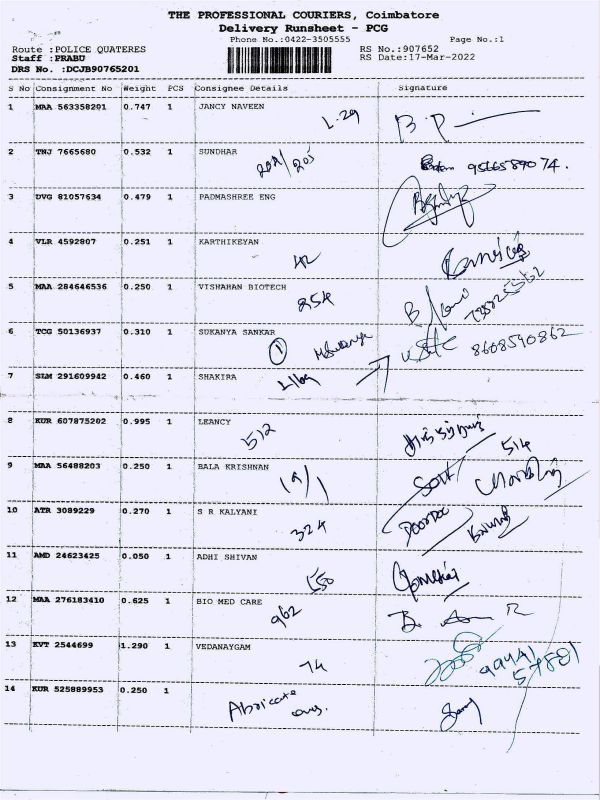 THE PROFESSIONAL COURIERS, Coimbatore
Delivery Runsheet - PCG
Phone No.:0422-3505555 Page No.:1
Route :POLICE QUATERES RS No.:907652
Staff :PRABU RS Date:17-Mar-2022
DRS No. :DCJB90765201
S No Consignment No Weight PCS Consignee Details Signature
1 MAA 563358201 0.747 1 JANCY NAVEEN
L.29 B.P
2 TNJ 7665680 0.532 1 SUNDHAR
204/205 9566589074.
3 DVG 81057634 0.479 1 PADMASHREE ENG
4 VLR 4592807 0.251 1 KARTHIKEYAN
42
5 MAA 284646536 0.250 1 VISHAHAN BIOTECH
854
6 TCG 50136937 0.310 1 SUKANYA SANKAR
1 8608590862
7 SLM 291609942 0.460 1 SHAKIRA
8 KUR 607875202 0.995 1 LEANCY
512 514
9 MAA 56488203 0.250 1 BALA KRISHNAN
19/1
10 ATR 3089229 0.270 1 S R KALYANI
324
11 AMD 24623425 0.050 1 ADHI SHIVAN
550
12 MAA 276183410 0.625 1 BIO MED CARE
962
13 KVT 2544699 1.290 1 VEDANAYGAM
74
14 KUR 525889953 0.250 1